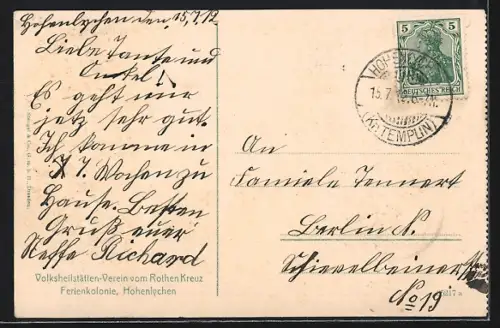 Hohenlychen den, 15,7.12
Liebe Tante und
Onkel!
Es geht mir
jetz sehr gut.
Ich komme in
7. Wochen zu
Hause. Besten
Gruß euer
Neffe Richard
Volksheilstätten-Verein vom Rothen Kreuz
Ferienkolonie, Hohenlychen
5 5
DEUTSCHES REICH
15.7
(KR. TEMPLIN)
An
Famiele Tennert
Berlin N.
Schievelbeiner
No 19